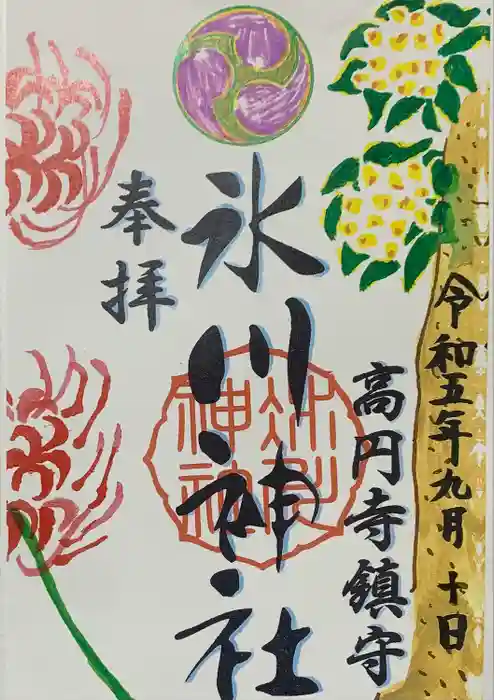 奉拝
氷川神社
氷川
神社
高円寺鎮守
令和五年九月十日